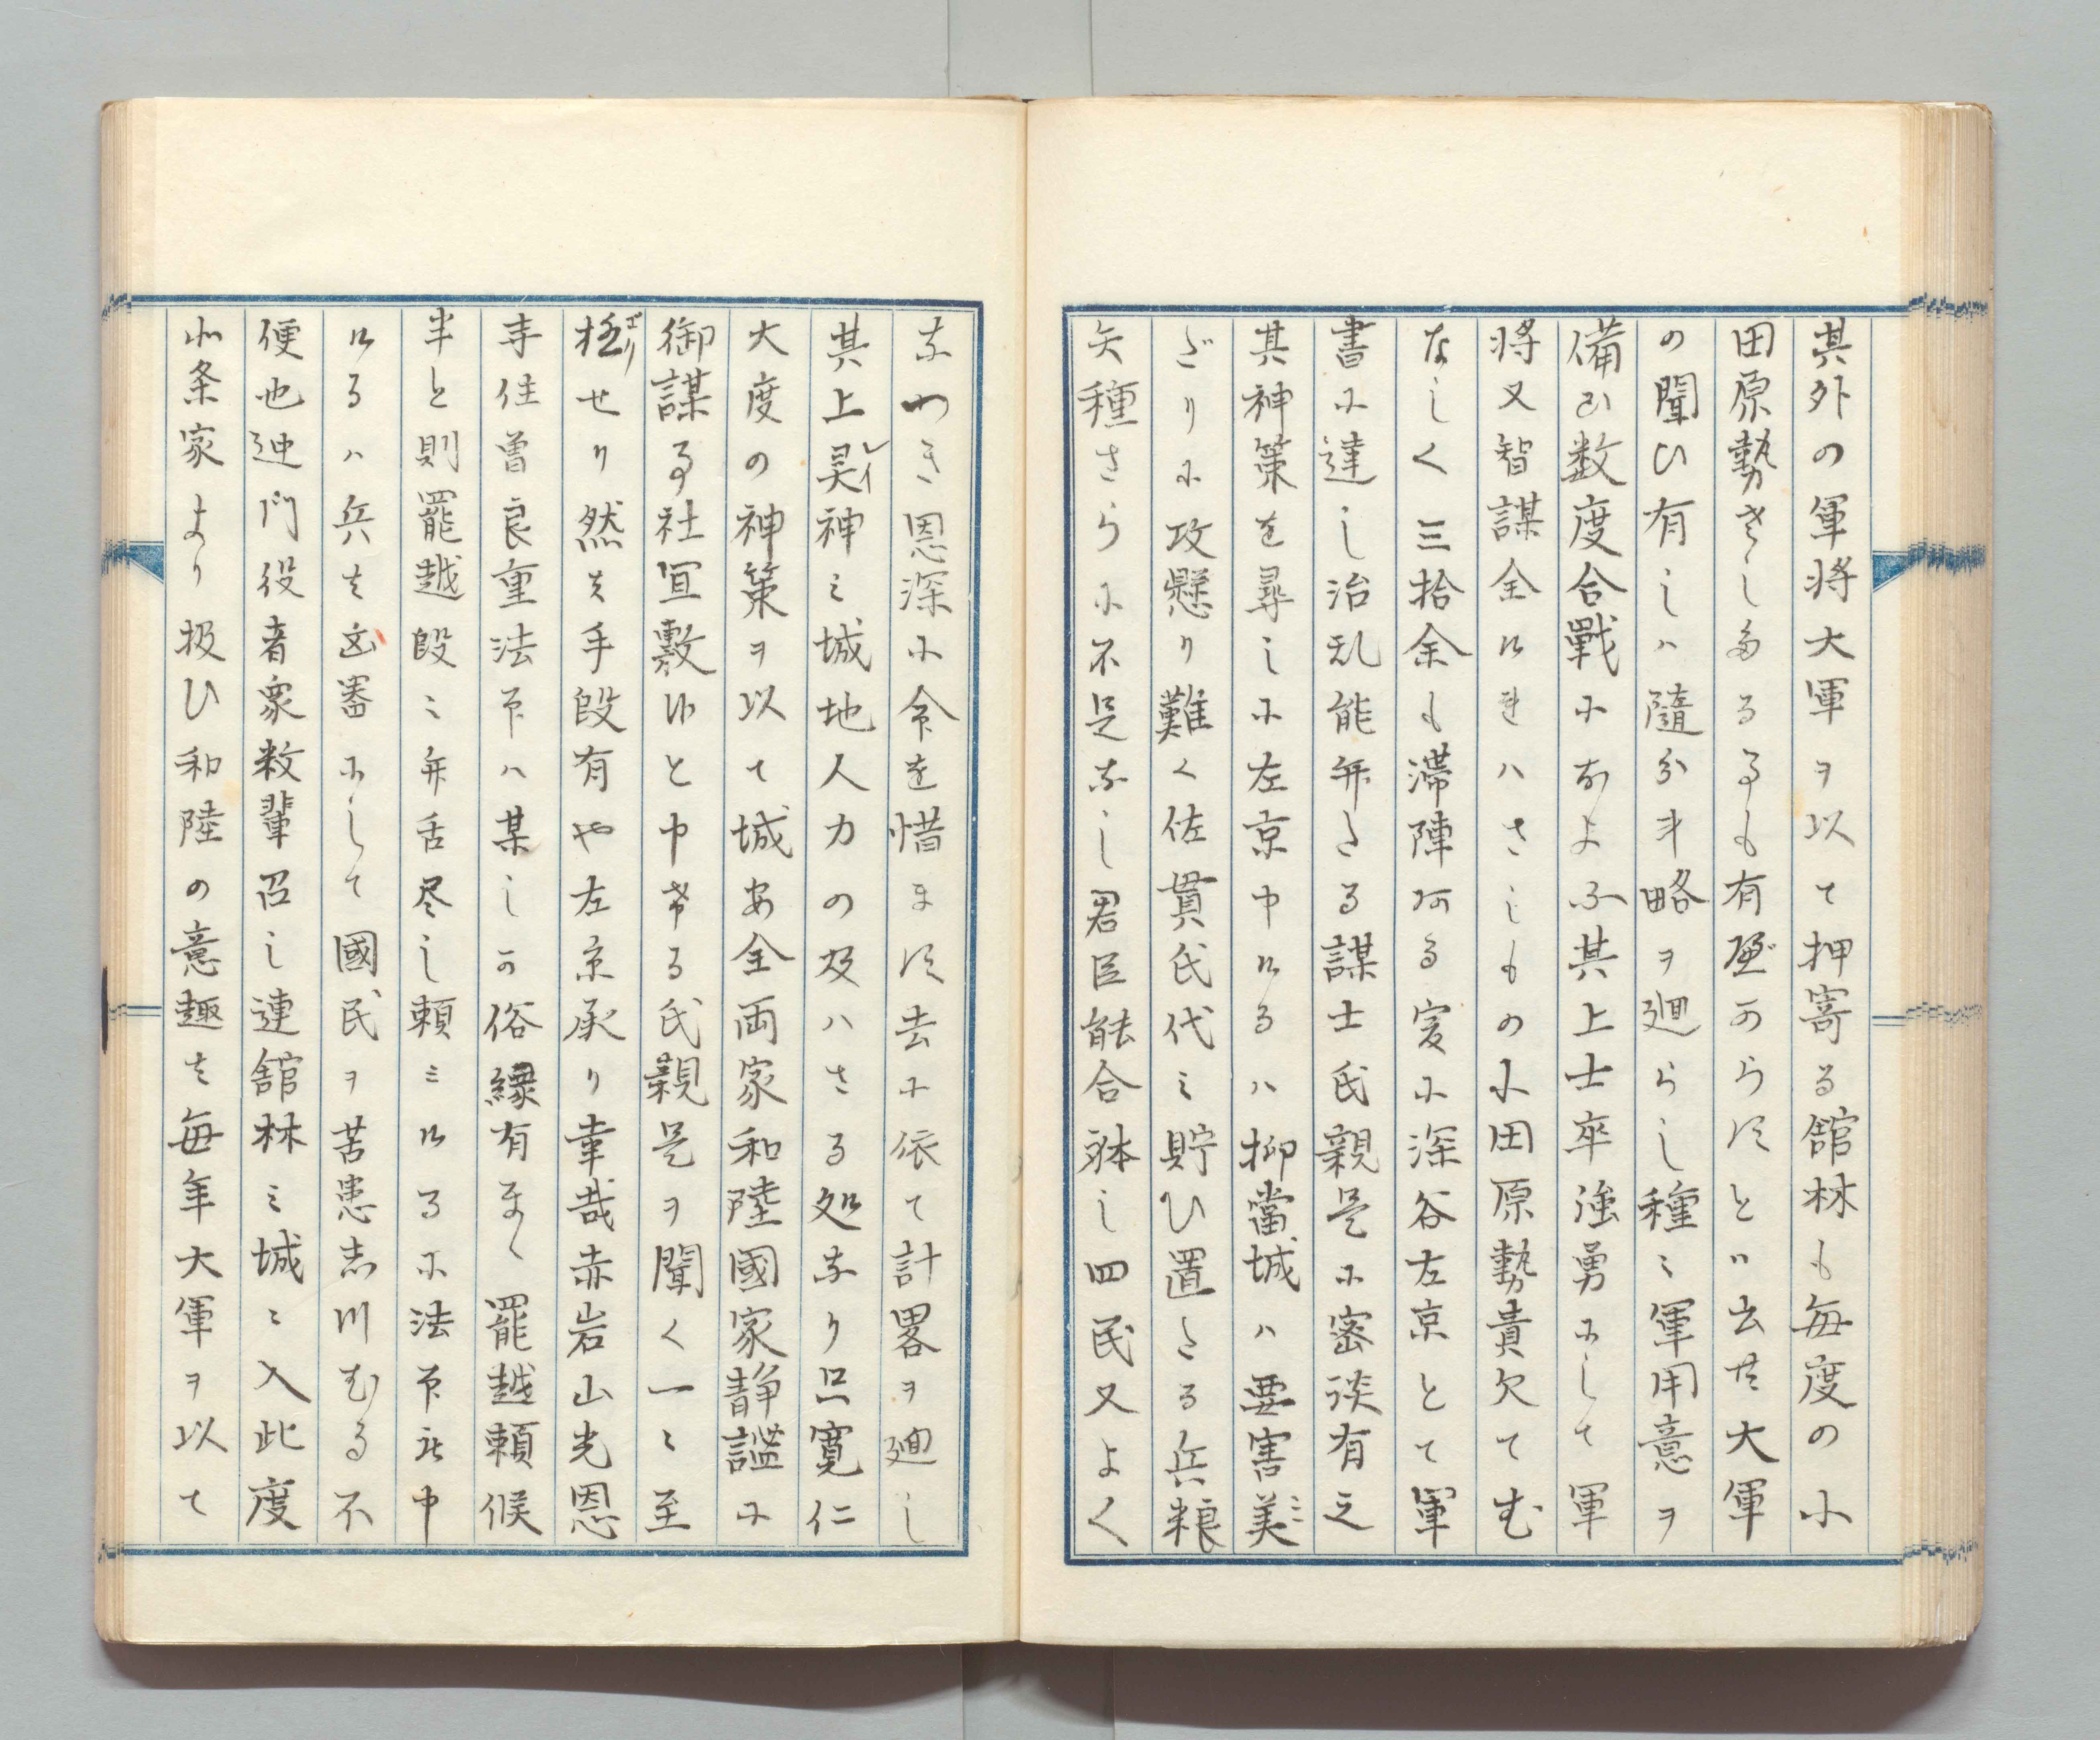 其外の軍将大軍ヲ以て押寄る舘林も毎度の小
田原勢きしたる事も有べからすといへ共大軍
の聞ひ有しハ随分才略ヲ廻らし種々軍用意ヲ
備ひ数度合戦におよふ其上士卒強勇にして軍
将又智謀全けれハさしもの小田原勢責欠てむ
なしく三拾余も滞陣ある爰に深谷左京とて軍
書に達し治乱能弁たる謀士氏親是に密談有之
其神策を尋しに左京申けるハ抑當城ハ要害美ミ
ごりに攻懸り難く佐貫氏代々貯ひ置たる兵粮
矢種さらに不足なし君臣能合躰し四民又よく
なつき恩深に命を惜ます去に依て計畧ヲ廻し
其上㚑レイ神之城地人力の及ハさる処なり只寛仁
大度の神策ヲ以て城安全両家和陸國家静謐に
御謀る社宜敷候と申ける氏親是ヲ聞く一々至
極ゴクリせり然は手段有や左京承り幸哉赤岩山光恩
寺住曽良重法印ハ某しの俗縁有まゝ罷越頼候
半と則罷越段々弁舌尽し頼ミけるに法印被申
けるハ兵は凶器にして國民ヲ苦患志川むる不
便也迚門役者衆数輩召し連舘林之城ニ入此度
北条家より扱ひ和陸の意趣は毎年大軍ヲ以て